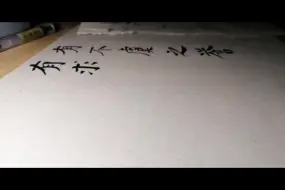 有不虞之誉
有求